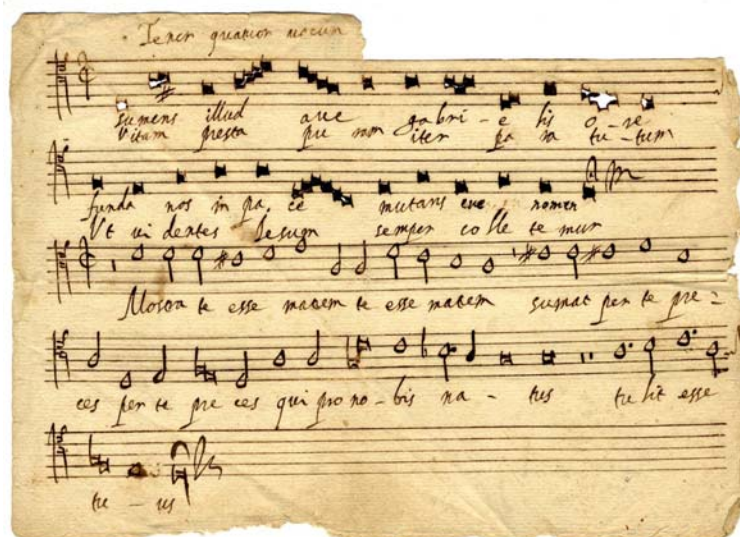 Tenor quatuor vocum
sumens illud ave gabri-e lis o-re
Vitam presta pu ram iter pa ra tu-tum
funda nos in pa, ce mutans eve nomen
Vt vi dentes Jesum semper co lle te mur
Mostra te esse matrem te esse matrem sumat per te pre-
ces per te pre ces qui pro no-bis na-tus tu lit esse
tu-us